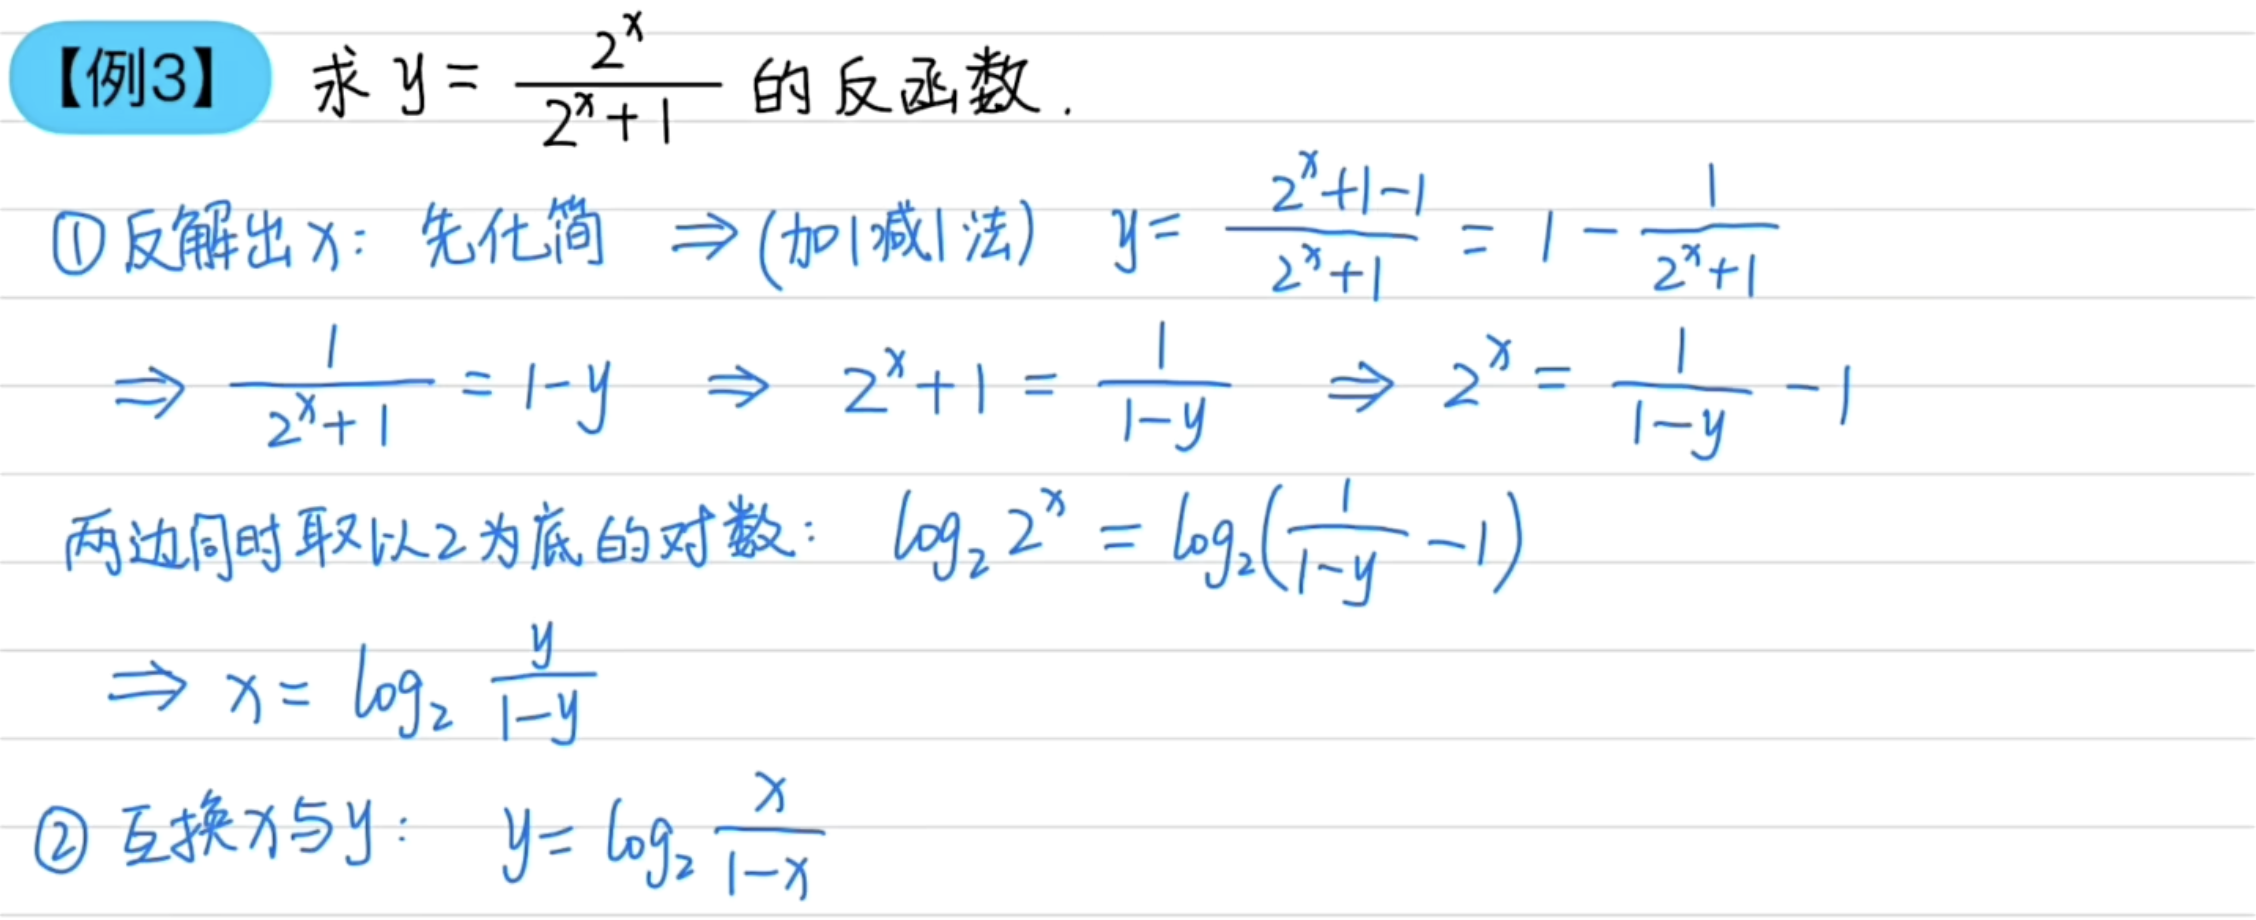 【例3】 求 y = 2^x / (2^x + 1) 的反函数.
① 反解出x: 先化简 ⇒ (加1减1法) y = (2^x + 1 - 1) / (2^x + 1) = 1 - 1 / (2^x + 1)
⇒ 1 / (2^x + 1) = 1 - y ⇒ 2^x + 1 = 1 / (1 - y) ⇒ 2^x = 1 / (1 - y) - 1
两边同时取以2为底的对数: log₂ 2^x = log₂(1 / (1 - y) - 1)
⇒ x = log₂ y / (1 - y)
② 互换x与y: y = log₂ x / (1 - x)